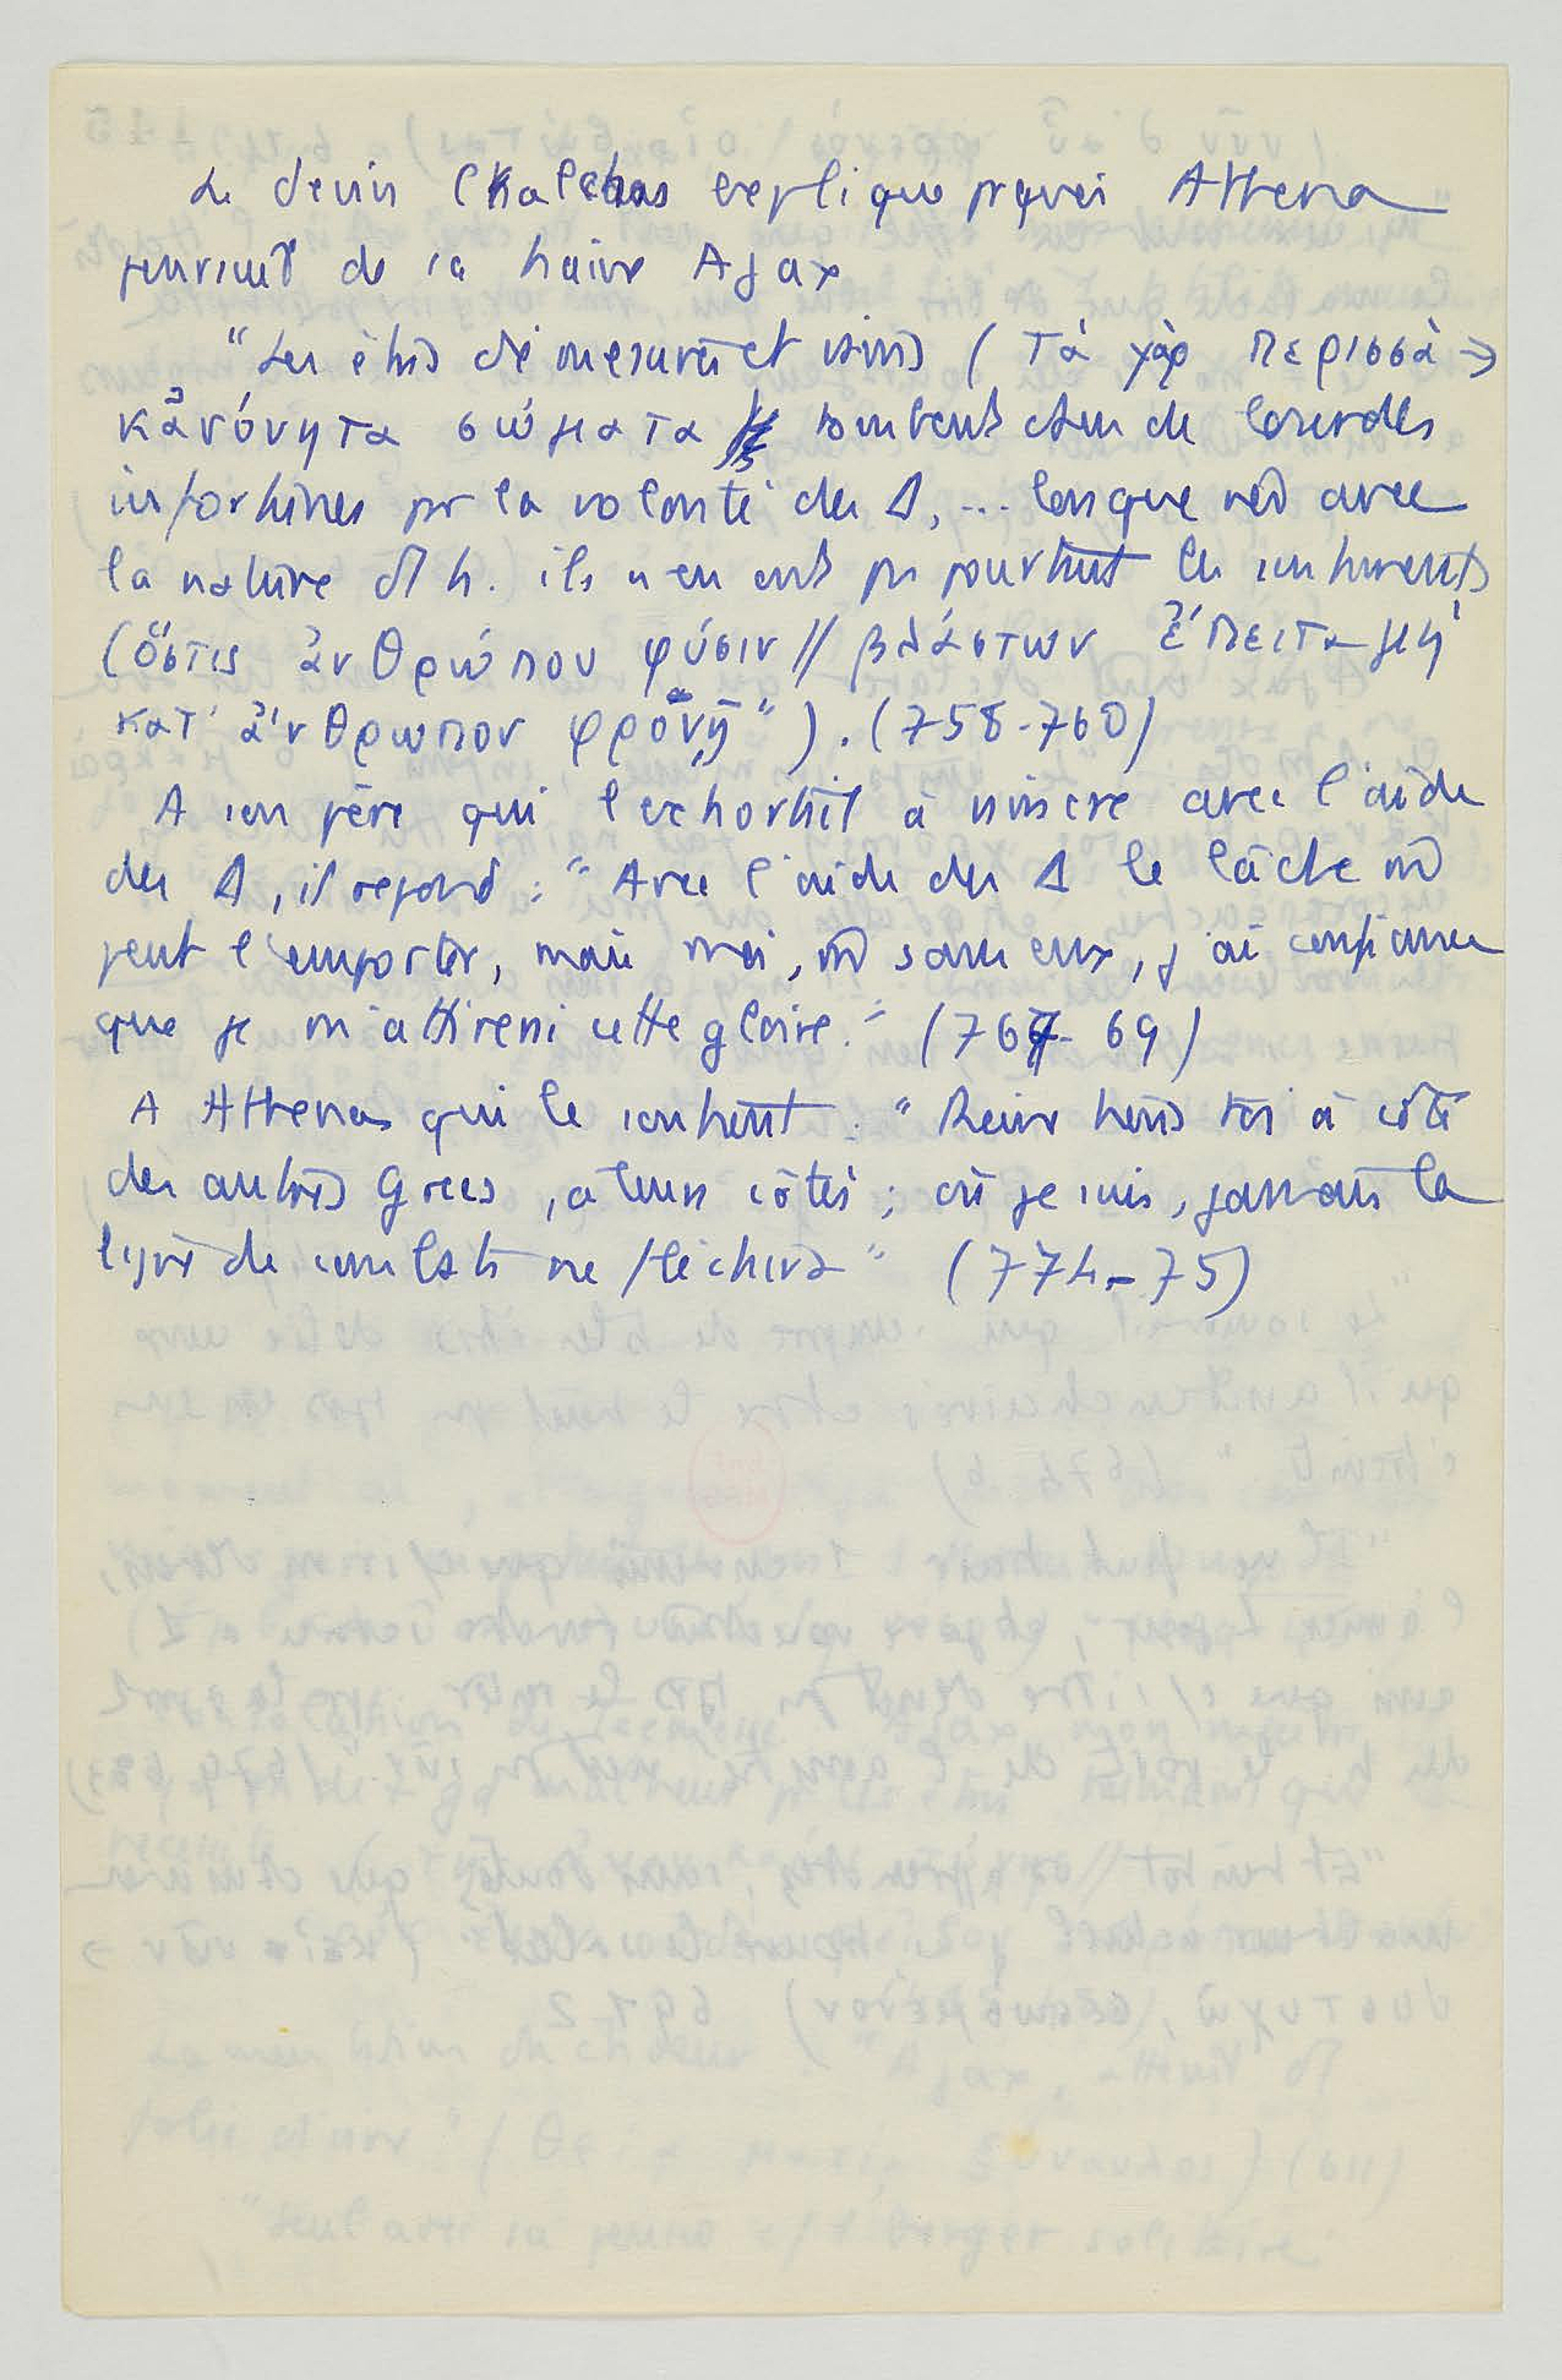 Le devin Kalchas explique pquoi Athena
poursuit de sa haine Ajax
"Les êtres démesurés et vains (τὰ γὰρ περισσὰ →
κἀνόνητα σώματα tombent dans de lourdes
infortunes pr la volonté des Δ, ... lorsque nés avec
la nature d'h. ils n'en ont ps pourtant les sentiments
(ὅστις ἀνθρώπου φύσιν // βλάστων ἔπειτα μή
κατ' ἄνθρωπον φρονῇ"). (758-760)
A son père qui l'exhortait à vaincre avec l'aide
des Δ, il répond : "Avec l'aide des Δ le lâche
peut l'emporter, mais moi, sans eux, j'ai confiance
que je m'attirerai cette gloire." (767-69)
A Athena qui le soutient : "Reine tiens toi à côté
des autres Grecs, à leurs côtés ; où je suis, jamais la
ligne de combat ne fléchira" (774-75)